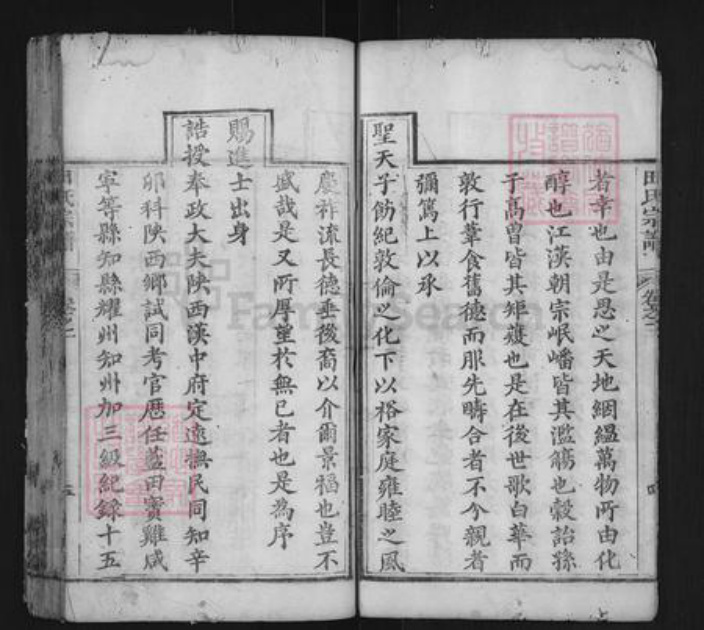 田氏宗譜
卷之二
者幸也由是思之天地絪縕萬物所由化
醇也江漢朝宗岷嶓皆其濫觴也穀詒孫
于高曾皆其矩矱也是在後世歌白華而
敦行葦食舊德而服先疇合者不分親者
彌篤上以承
聖天子飭紀敦倫之化下以裕家庭雍睦之風
慶祚流長德垂後裔以介爾景福也豈不
盛哉是又所厚望於無已者也是為序
賜進士出身
誥授奉政大夫陝西漢中府定遠撫民同知辛
卯科陝西鄉試同考官歷任藍田寶雞咸
寧等縣知縣耀州知州加三級紀錄十五
田氏宗譜
卷之二
五
FamilySearch